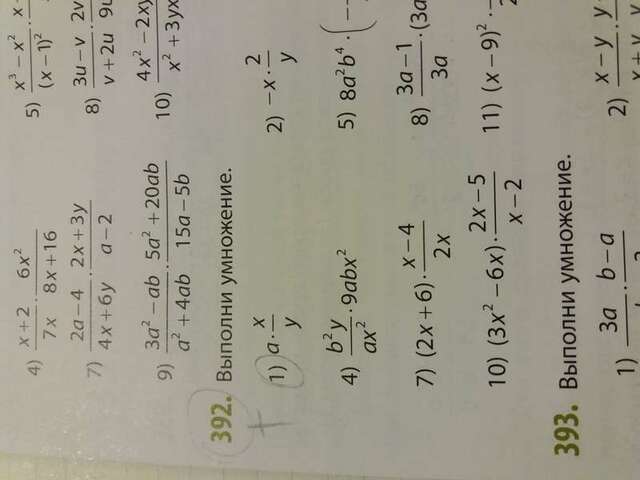 4) (x+2)/(7x) · (6x²)/(8x+16) 5) (x³−x²)/(x−1)² · x−
7) (2a−4)/(4x+6y) · (2x+3y)/(a−2) 8) (3u−v)/(v+2u) · 2v/9u
9) (3a²−ab)/(a²+4ab) · (5a²+20ab)/(15a−5b) 10) (4x²−2xy)/(x²+3yx)
392. Выполни умножение.
1) a · x/y 2) −x · 2/y
4) b²y/ax² · 9abx² 5) 8a²b⁴ · (−
7) (2x+6) · (x−4)/(2x) 8) (3a−1)/(3a) · (3a
10) (3x²−6x) · (2x−5)/(x−2) 11) (x−9)² ·
393. Выполни умножение.
1) 3a · b−a 2) x−y · y−